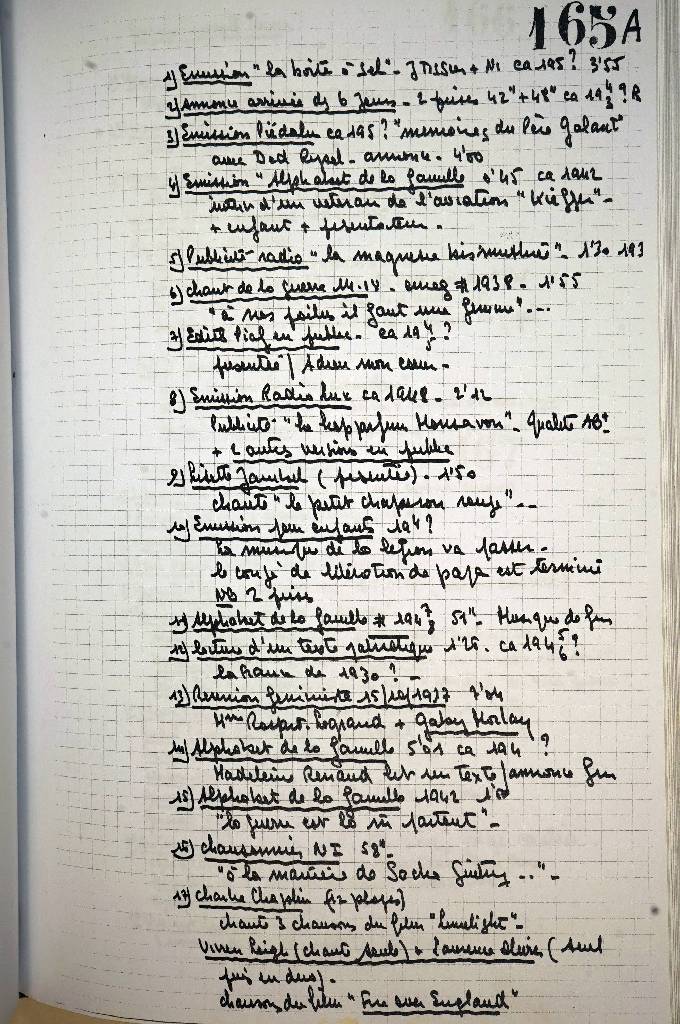 165A
1) Emission "la boîte à sel" - J Tissier + NI ca 195? 3'55
2) annonce arrivée ds 6 jours - 2 prises 42" + 48" ca 194 ? R
3) Emission Piédalu ca 195? "memoires du Père Galant"
avec Ded Rysel - annonce - 4'00
4) Emission "Alphabet de la famille 0'45 ca 1942
interv d'un veteran de l'aviation "Kieffer" -
+ enfant + présentateur -
5) Publicité radio "la magnesie bismurée" - 1'30 193
6) chant de la guerre 14-18 - enreg # 1938 - 1'55
"à nos poilus il faut une femme" ...
7) Edith Piaf en public - ca 194 ?
présentée / Adieu mon coeur -
8) Emission Radio Lux ca 1948 - 2'12
Publicité "le hesp parfum Monsavon" - Qualité AB+
+ 2 autres versions en public
9) Lisette Jambel (présentée) - 1'50
chante "le petit chaperon rouge" --
10) Emission pour enfants 194?
la musique de la legion va passer -
le congé de libération de papa est terminé
NB 2 prises
11) Alphabet de la famille # 194 51" - Musique de fin
12) lecture d'un texte patriotique 1'25 - ca 194 ?
la France de 1930 ? -
13) Reunion feministe 15/10/1937
Mme + Gaby Morlay
14) Alphabet de la famille 5'01 ca 194 ?
Madeleine Renaud lit un texte / annonce fin
15) Alphabet de la famille 1942
"la guerre est là ni partout" -
16) chansonnier NI 58" -
"à la manière de Sacha Guitry .." -
17) Charlie Chaplin (12 plages)
chante 3 chansons du film "limelight" -
Vivien Leigh (chante seule) + Laurence Olivier (seul
puis en duo) -
chanson du film "Fire over England"